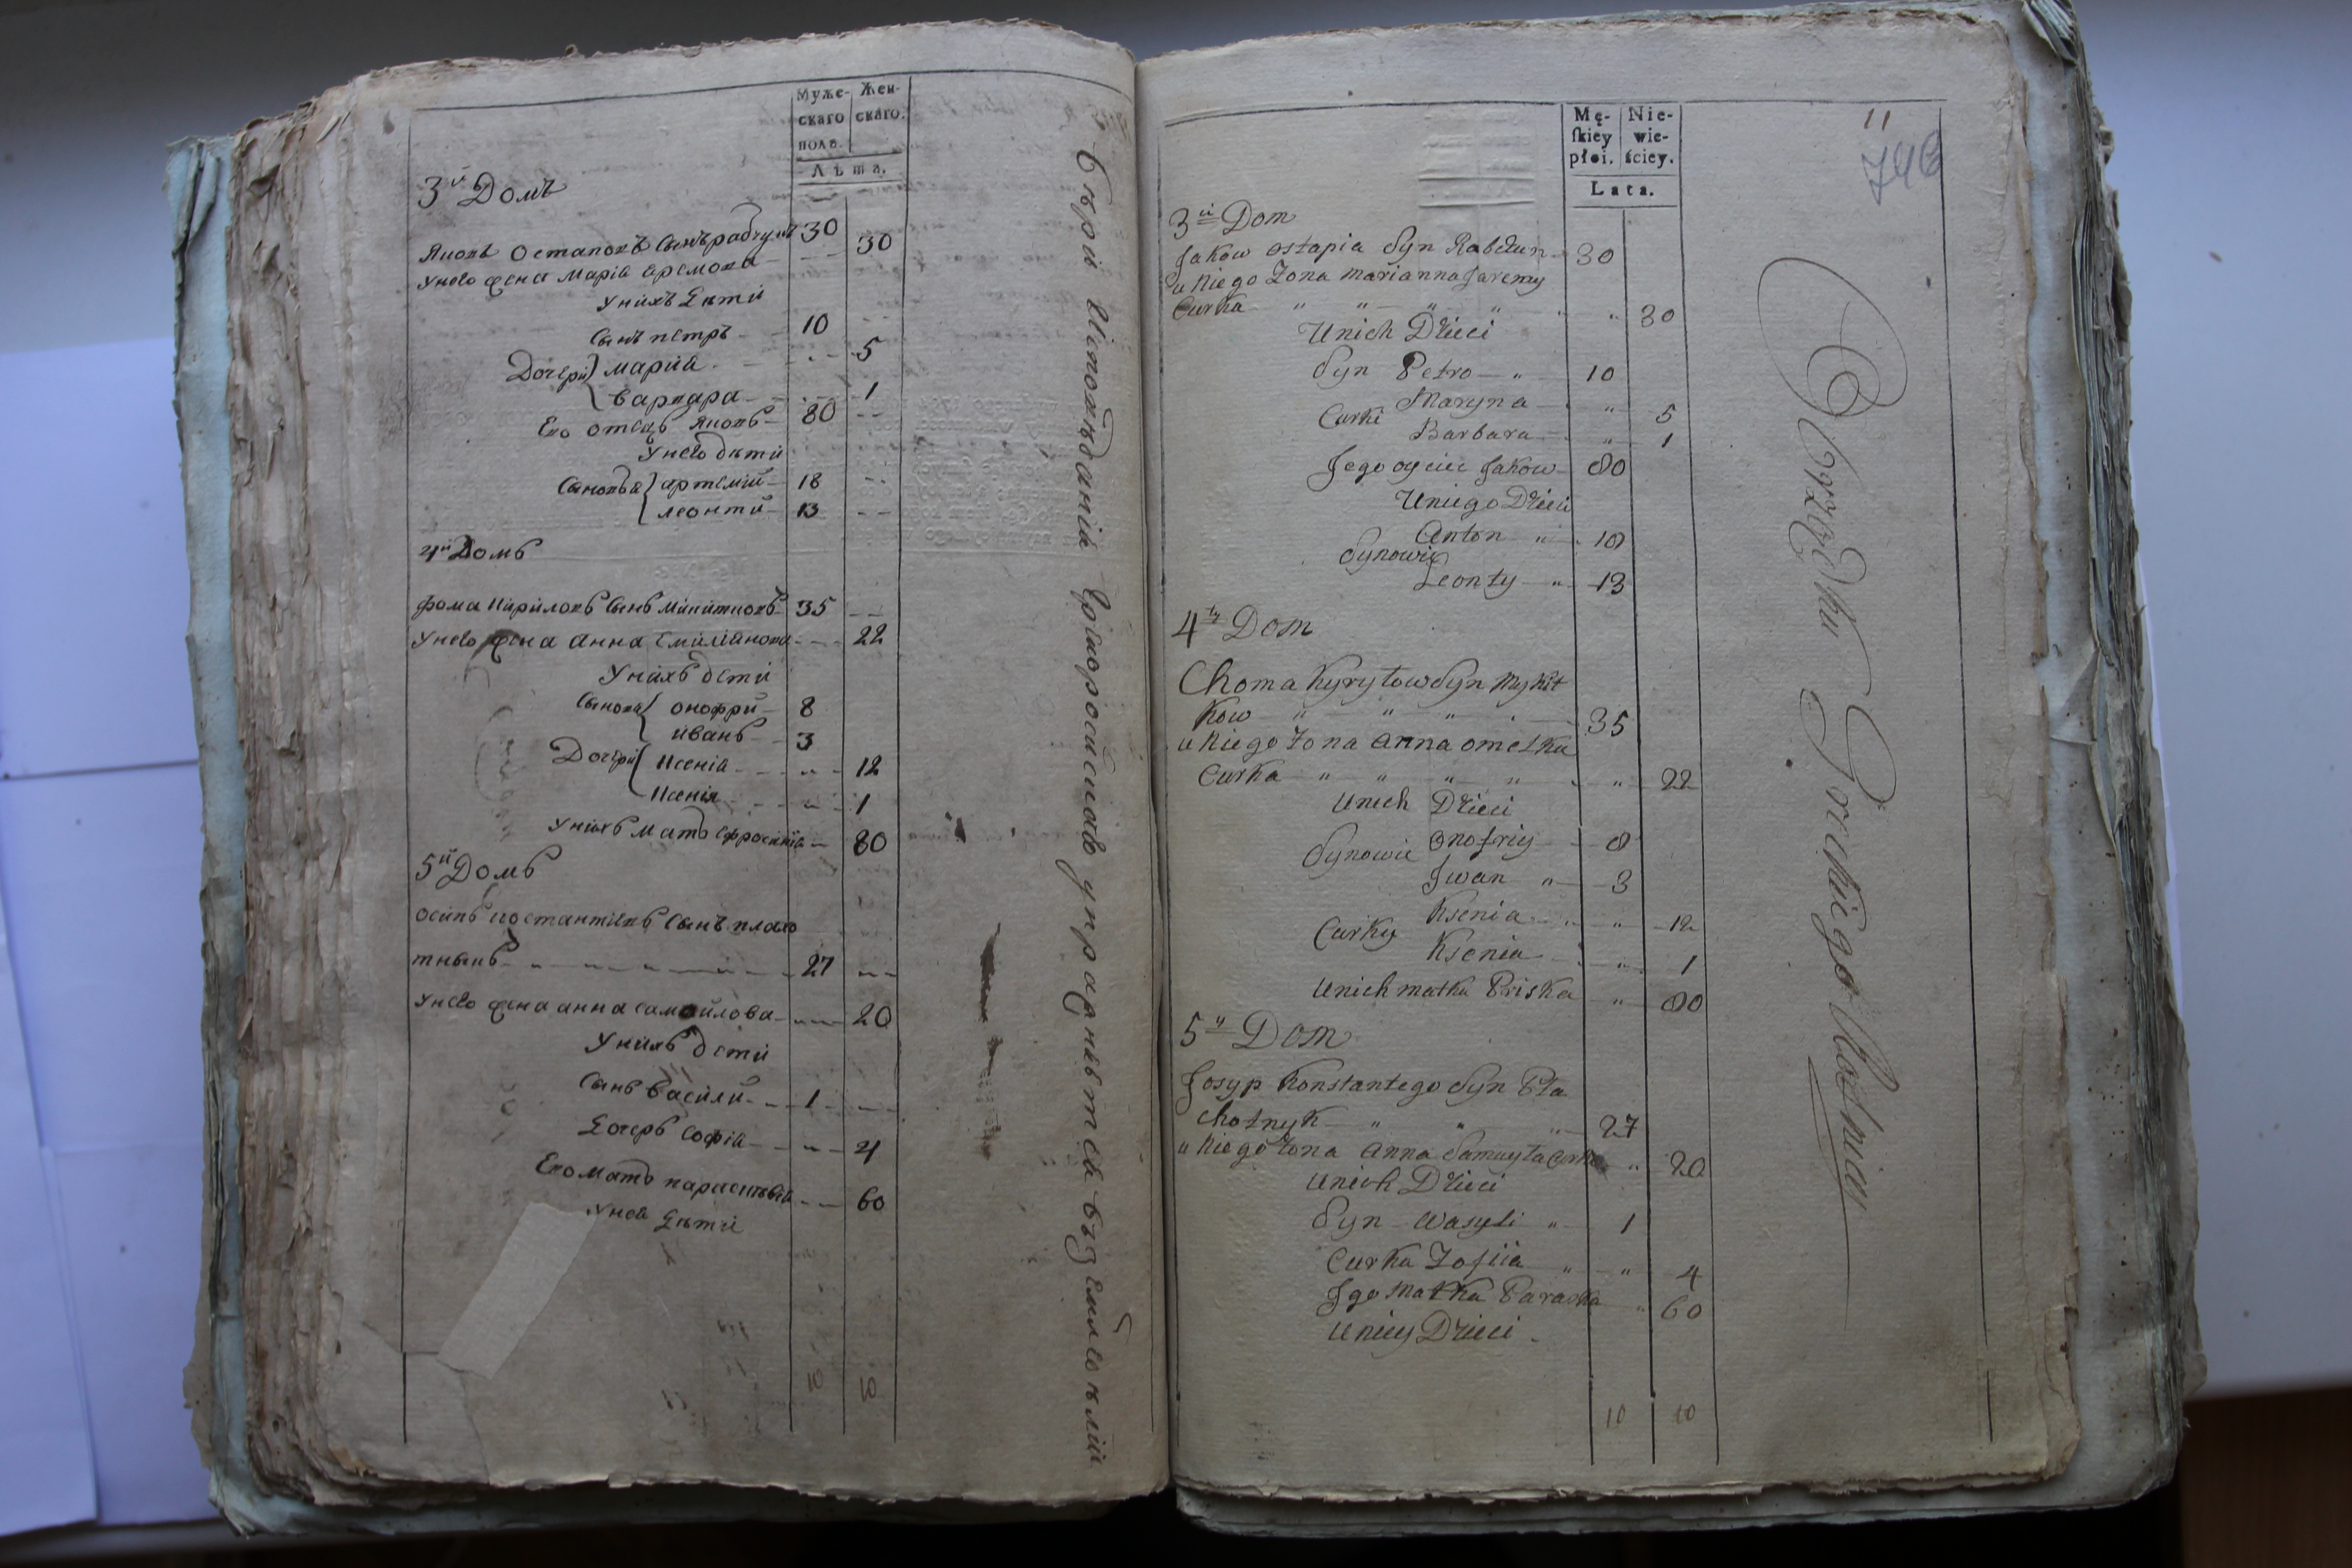 Муже-
скаго
пола.
Жен-
скаго.
Лѣта.
3й Домъ
Яковъ Остаповъ Сынъ рабчунъ 30
унево жена Марія Яремова 30
унихъ дѣти
Сынъ петръ 10
Дочери марія 5
варвара 1
Его отецъ Яковъ 80
унево дѣти
Сыновья артемій 18
леонтій 13
4й Домъ
фома Кириловъ Сынъ Микитковъ 35
унево жена анна Емиліянова 22
Унихъ дети
Сынови онофри 8
иванъ 3
Дочери Ксенія 12
Ксенія 1
Унихъ мать Ефросинія 80
5й Домъ
осипъ костантіевъ Сынъ плахо
тныкъ 27
унево жена анна самойлова 20
Унихъ дети
Сынъ василій 1
дочеръ софія 4
Его мать параскевія 60
унея дѣти
10 10
вѣры Исповѣданія Грекороссискаго управляется въ земляною
11
746
Mę-
skiey
płci.
Nie-
wie-
ściey.
Lata.
3ci Dom
Jakow ostapia Syn Rabczun 30
u Niego Żona marianna Jaremy
Curka " " " " " " 30
Unich Dzieci
Syn Petro " 10
Curki Maryna " 5
Barbara " 1
Jego oyciec Jakow 80
Uniego Dzieci
Synowie Anton " 18
Leonty " 13
4ty Dom
Choma Kyryłow Syn Mykit
Kow " " " 35
u Niego Żona Anna omelka
Curka " " " " " 22
Unich Dzieci
Synowie Onofriy 8
Jwan " 3
Curky Ksenia " 12
Ksenia " 1
Unich matka Priska " 80
5y Dom
Josyp Konstantego Syn Pła
chotnyk " " " 27
u Niego Żona Anna Samuyła Curka " 20
Unich Dzieci
Syn Wasyli " 1
Curka Zofiia " " 4
Jgo Matka Paraska " 60
Uniey Dzieci
10 10
Obrządku Greckiego Rolnicy